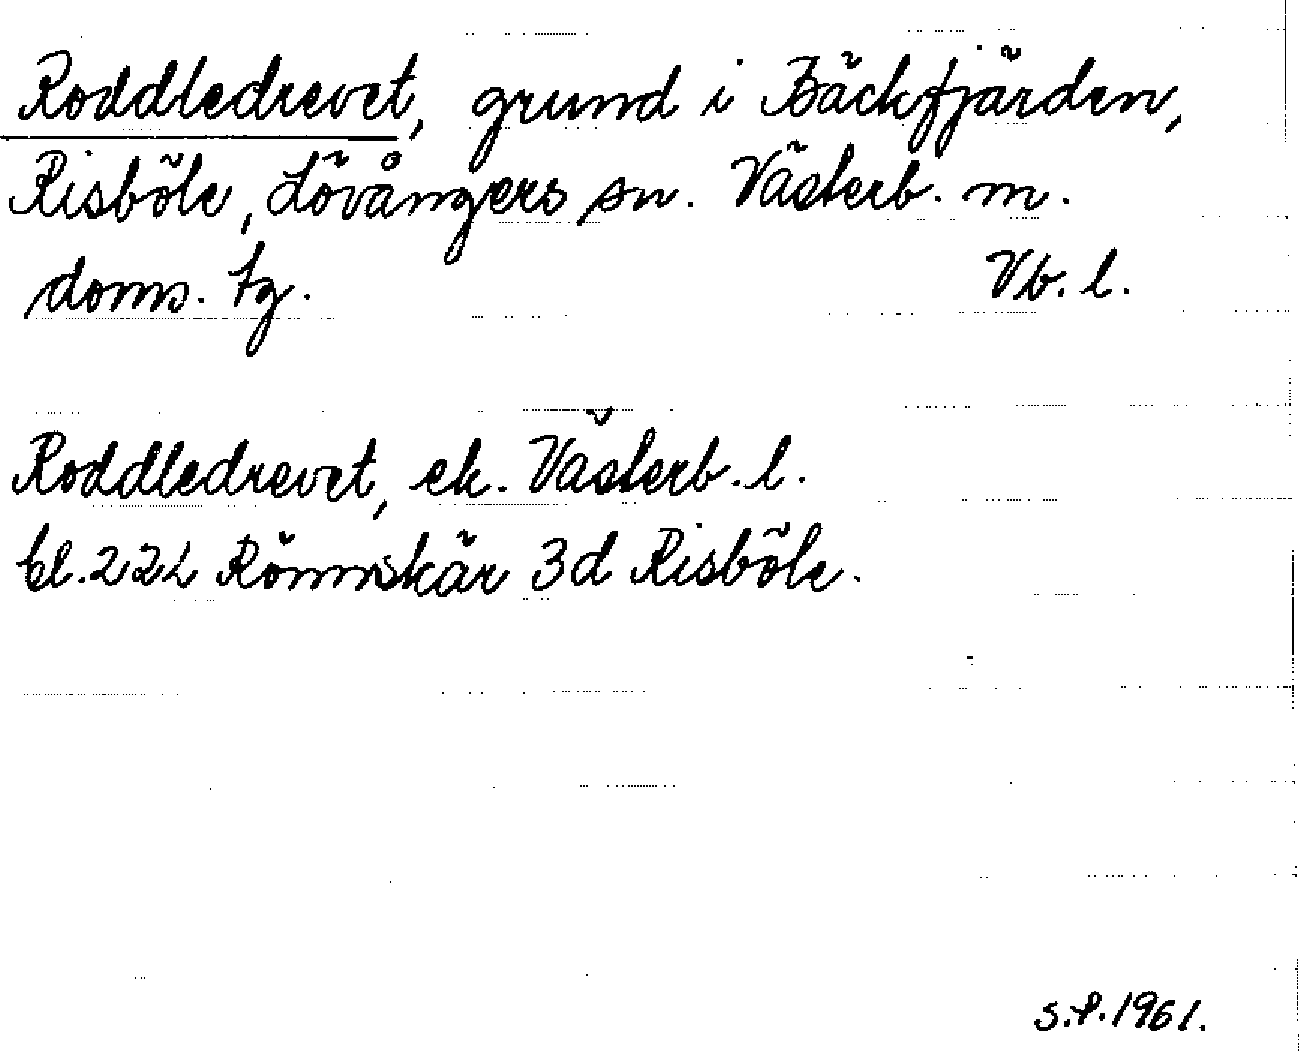 Roddledrevet, grund i Bäckfjärden,
Risböle, Lövångers sn. Västerb. m.
doms. tg. Vb. l.
Roddledrevet, ek. Västerb. l.
bl. 222 Rönnskär 3d Risböle.
S.P. 1961.